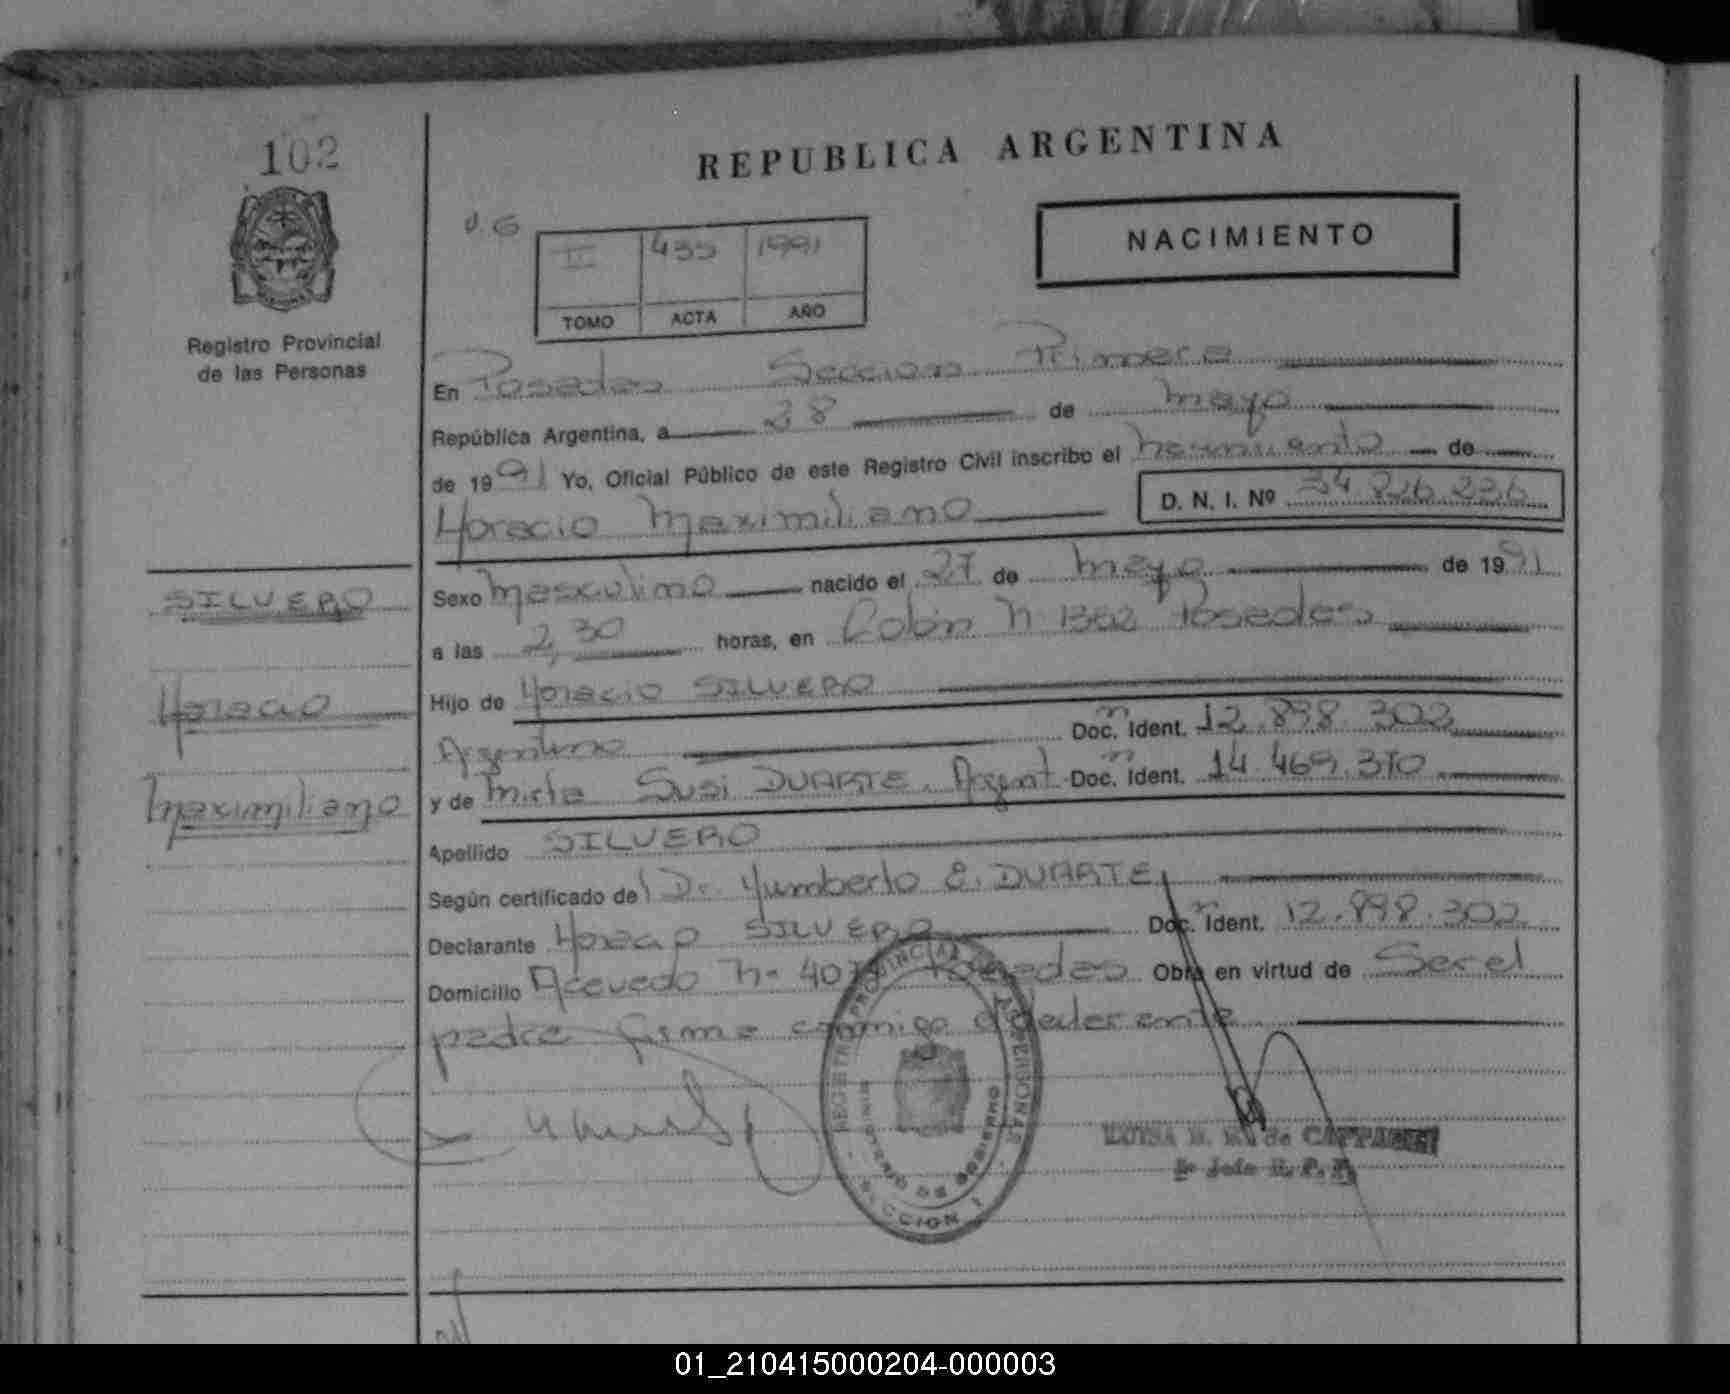 102
REPUBLICA ARGENTINA
U. G
II 435 1991
TOMO ACTA AÑO
NACIMIENTO
Registro Provincial
de las Personas
En Posadas Seccion Primera
República Argentina, a 28 de mayo
de 1991 Yo, Oficial Público de este Registro Civil inscribo el nacimiento de
Horacio Maximiliano D. N. I. Nº 34.826.226
SILVERO
Horacio
Maximiliano
Sexo Masculino nacido el 27 de mayo de 1991
a las 2,30 horas, en Colón Nº 1382 Posadas
Hijo de Horacio SILVERO
Argentino Doc. Ident. 12.898.302
y de Mirta Susi DUARTE. Argent. Doc. Ident. 14.469.370
Apellido SILVERO
Según certificado del Dr. Humberto E. DUARTE
Declarante Horacio SILVERO Doc. Ident. 12.898.302
Domicilio Acevedo Nº Posadas Obra en virtud de Ser el
padre firma conmigo el declarante
REGISTRO PROVINCIAL DE PERSONAS
MINISTERIO DE GOBIERNO
SECCION 1
LUISA de
Jefe R. P. P.
01_210415000204-000003